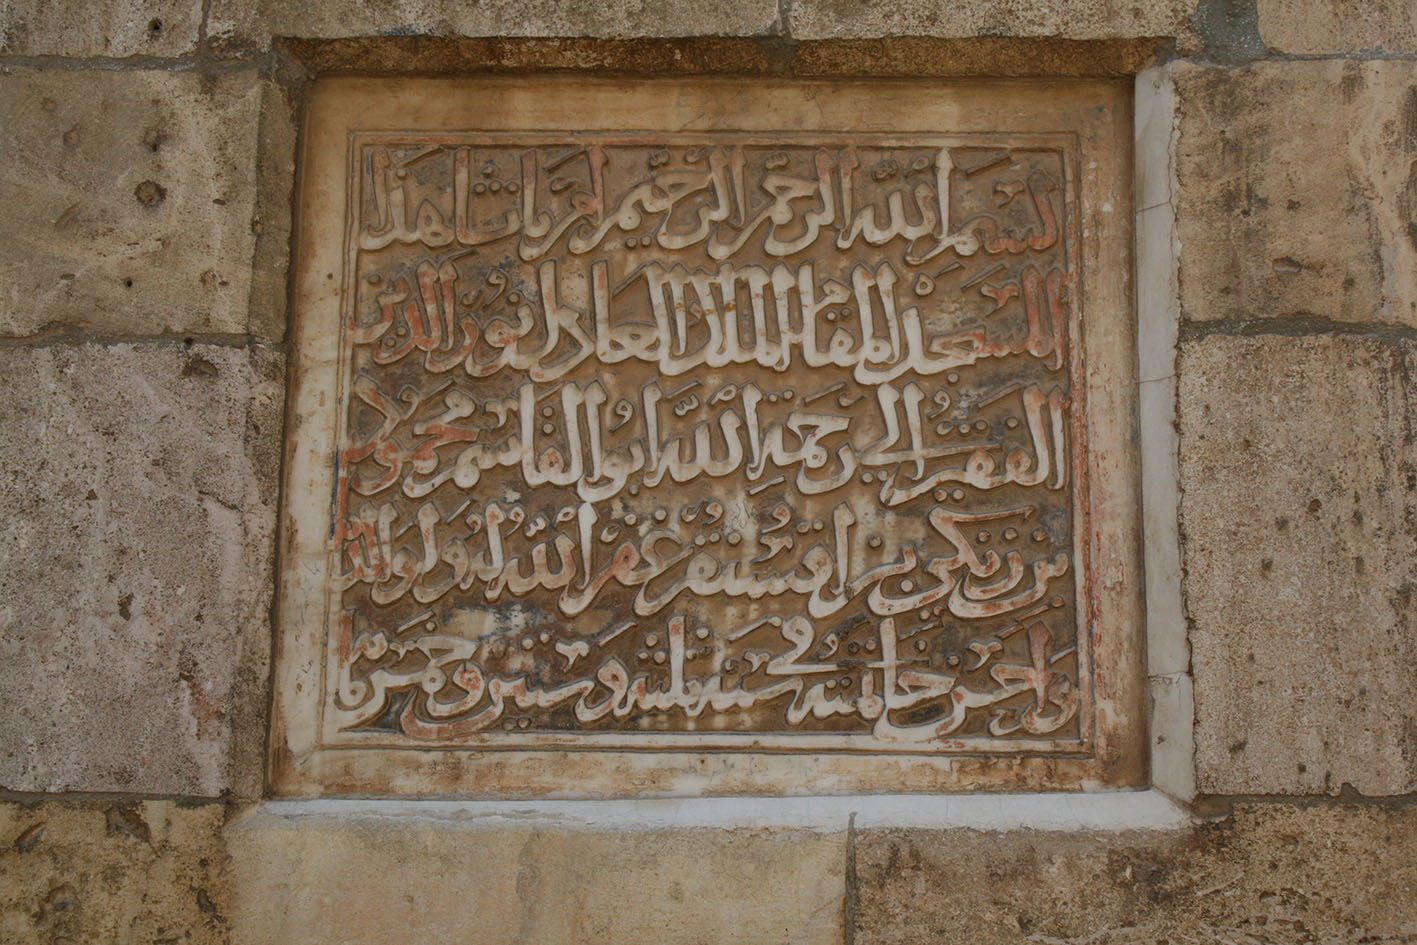 بسم الله الرحمن الرحيم امر بانشا هذا
المسجد المقام الملك العادل نور الدين
الفقير الى رحمة الله ابو القاسم محمود
بن زنكي بن اقسنقر غفر الله له ولوالديه
واحسن خاتمته في سنة ستين وخمس